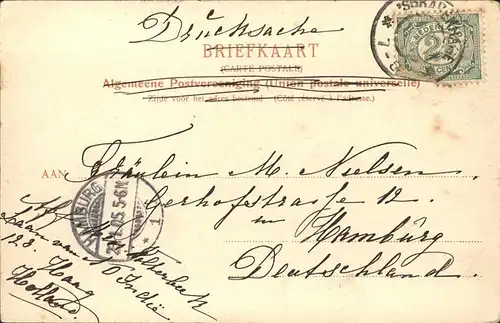 Drucksache
BRIEFKAART
(CARTE POSTALE)
Algemeene Postvereeniging (Union postale universelle)
Zijde voor het adres bestemd (Côté réservé à l'adresse.)
AAN Fräulein M. Nielsen.
Gerhofstrasse 12.
in Hamburg
Deutschland.
HAMBURG
.05.5-6N
* 1
Laan van N. O. Indië
128. Haag
Holland.
NEDERLAND
2½
CENT